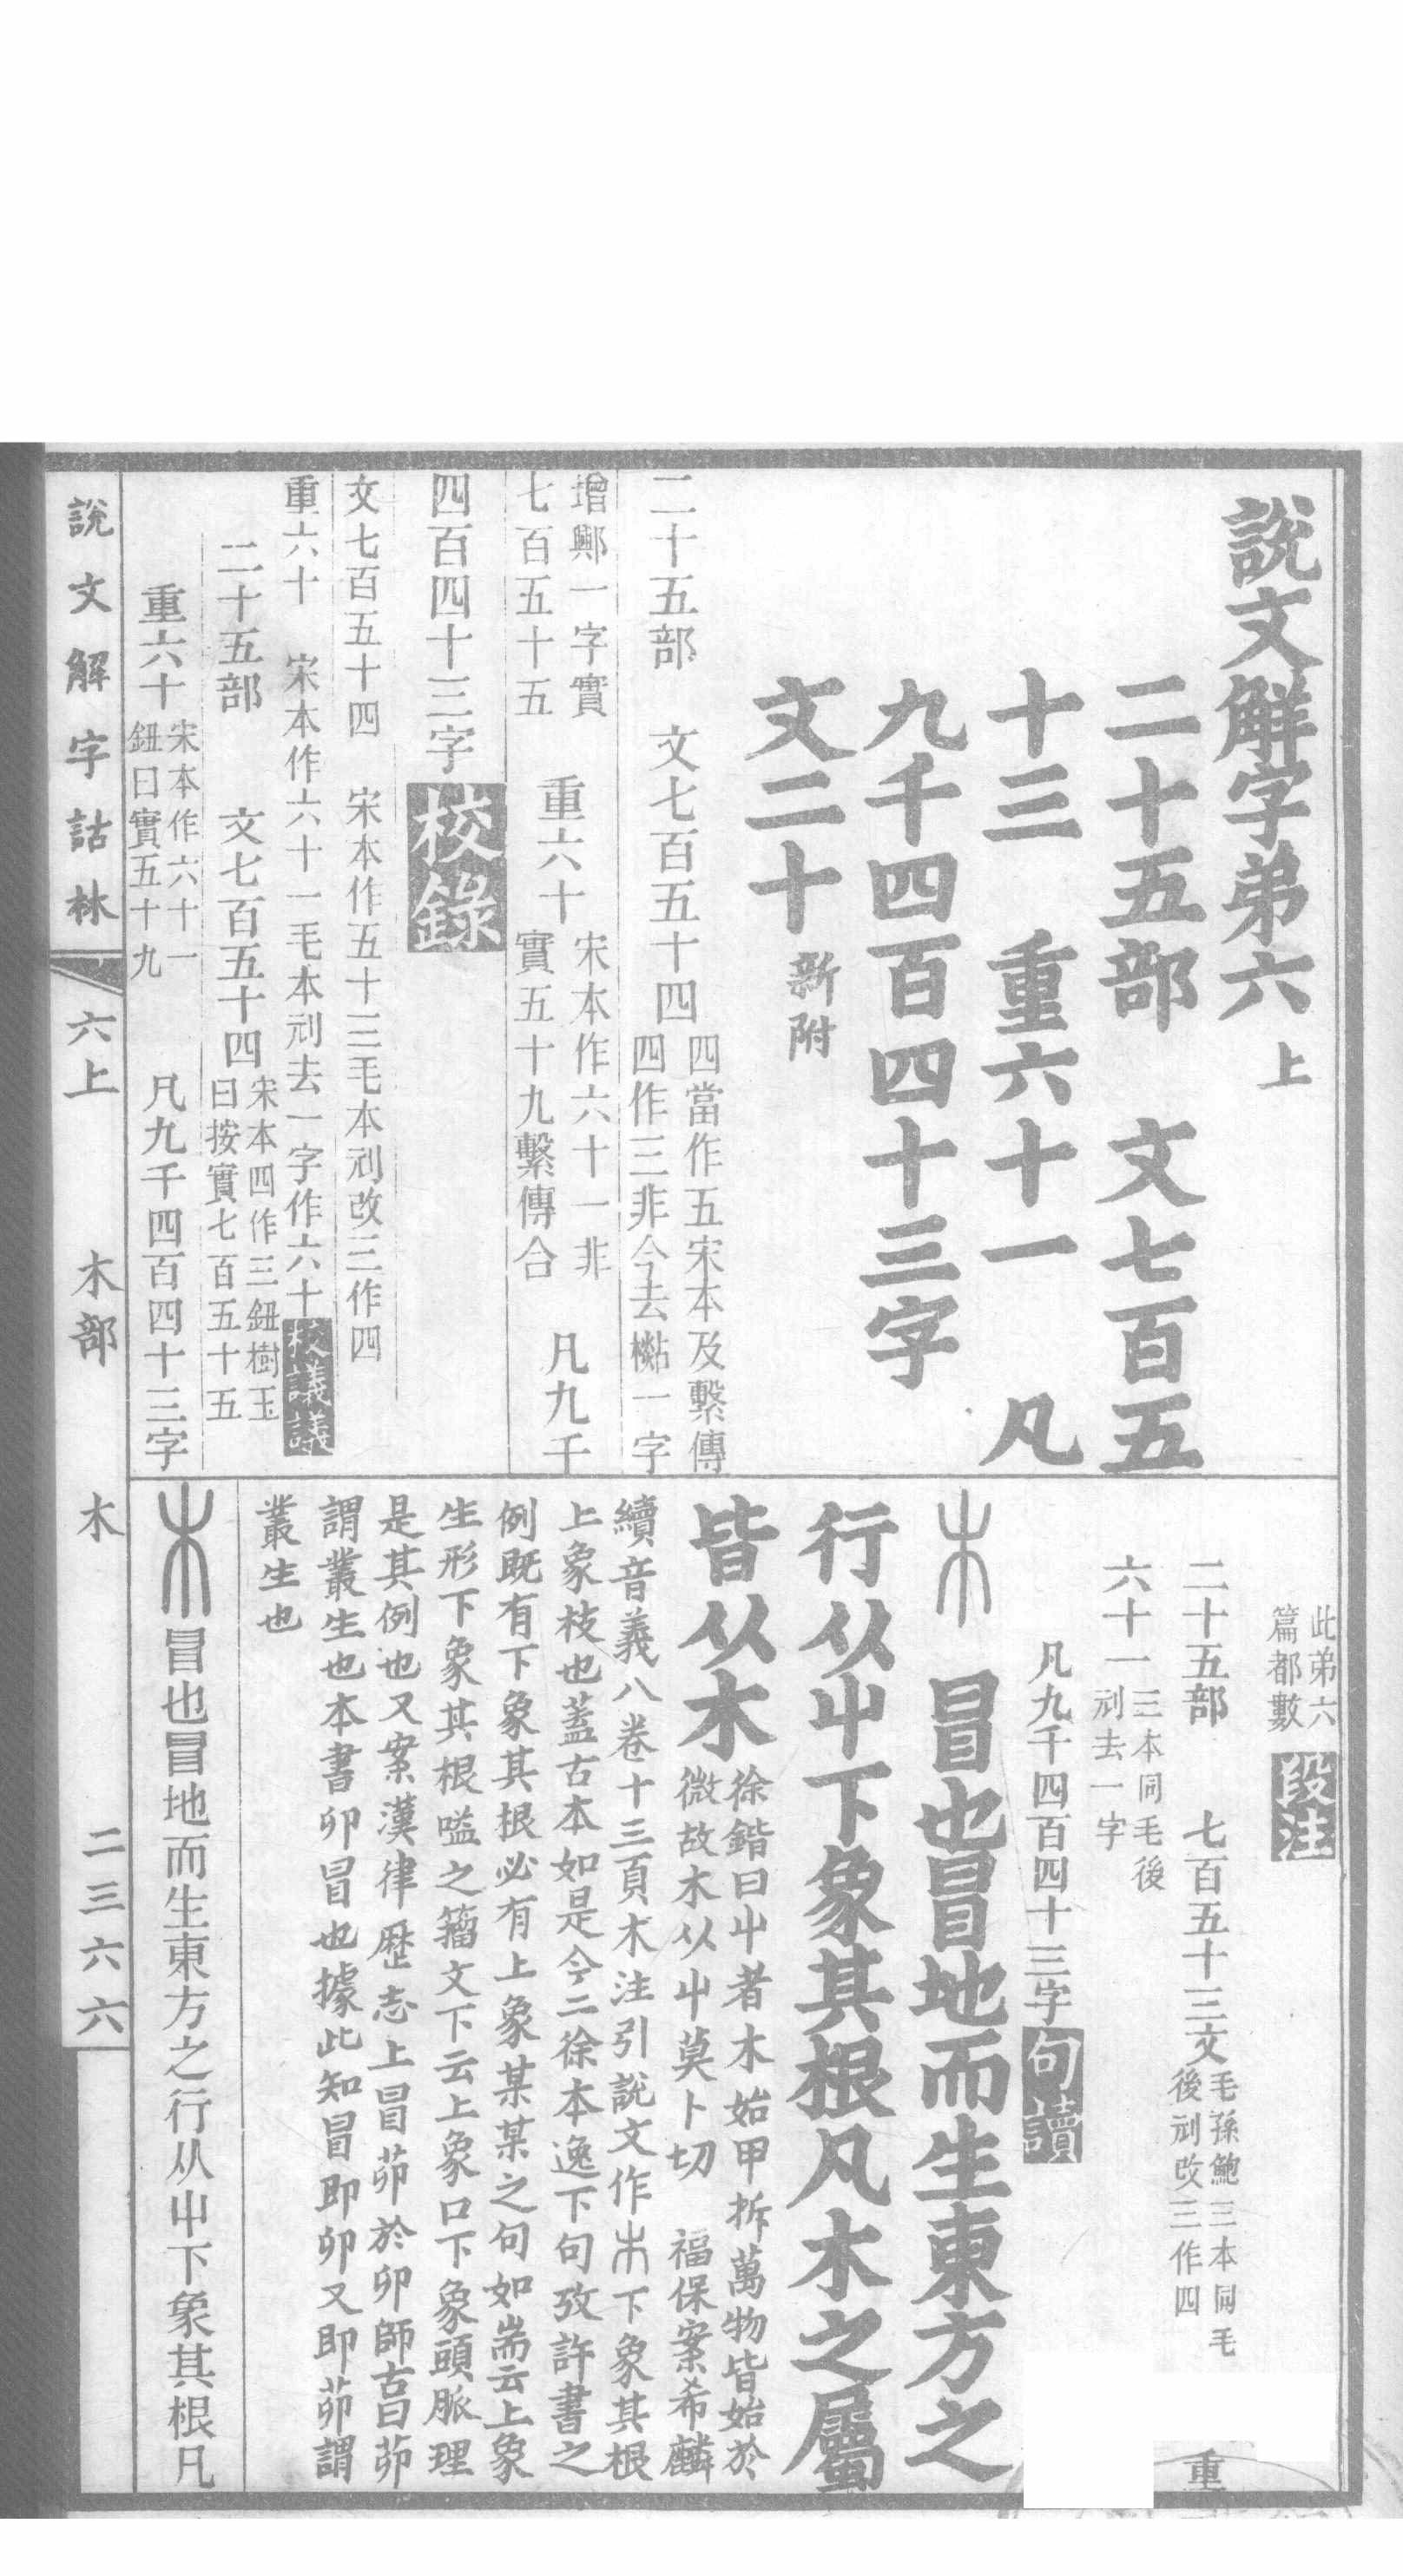 說文解字弟六上
二十五部　文七百五
十三　重六十一　凡
九千四百四十三字
文二十新附
二十五部　文七百五十四四當作五宋本及繫傳
四作三非今去㯠一字
增鄸一字實
七百五十五　重六十宋本作六十一非
實五十九繫傳合　凡九千
四百四十三字校錄
文七百五十四　宋本作五十三毛本剜改三作四
重六十　宋本作六十一毛本剜去一字作六十校議議
二十五部　文七百五十四宋本四作三鈕樹玉
曰按實七百五十五
重六十宋本作六十一
鈕曰實五十九　凡九千四百四十三字
此弟六
篇都數段注
二十五部　七百五十三文毛孫鮑三本同毛
後剜改三作四　重
六十一三本同毛後
剜去一字
凡九千四百四十三字句讀
木　冒也冒地而生東方之
行从屮下象其根凡木之屬
皆从木徐鍇曰屮者木始甲拆萬物皆始於
微故木从屮莫卜切　福保案希麟
續音義八卷十三頁木注引說文作木下象其根
上象枝也蓋古本如是今二徐本逸下句攷許書之
例既有下象其根必有上象某某之句如耑云上象
生形下象其根嗌之籀文下云上象口下象頸脈理
是其例也又案漢律歷志上冒茆於卯師古曰茆
謂叢生也本書卯冒也據此知冒即卯又即茆謂
叢生也
木冒也冒地而生東方之行从屮下象其根凡
說文解字詁林　六上　木部　木　二三六六